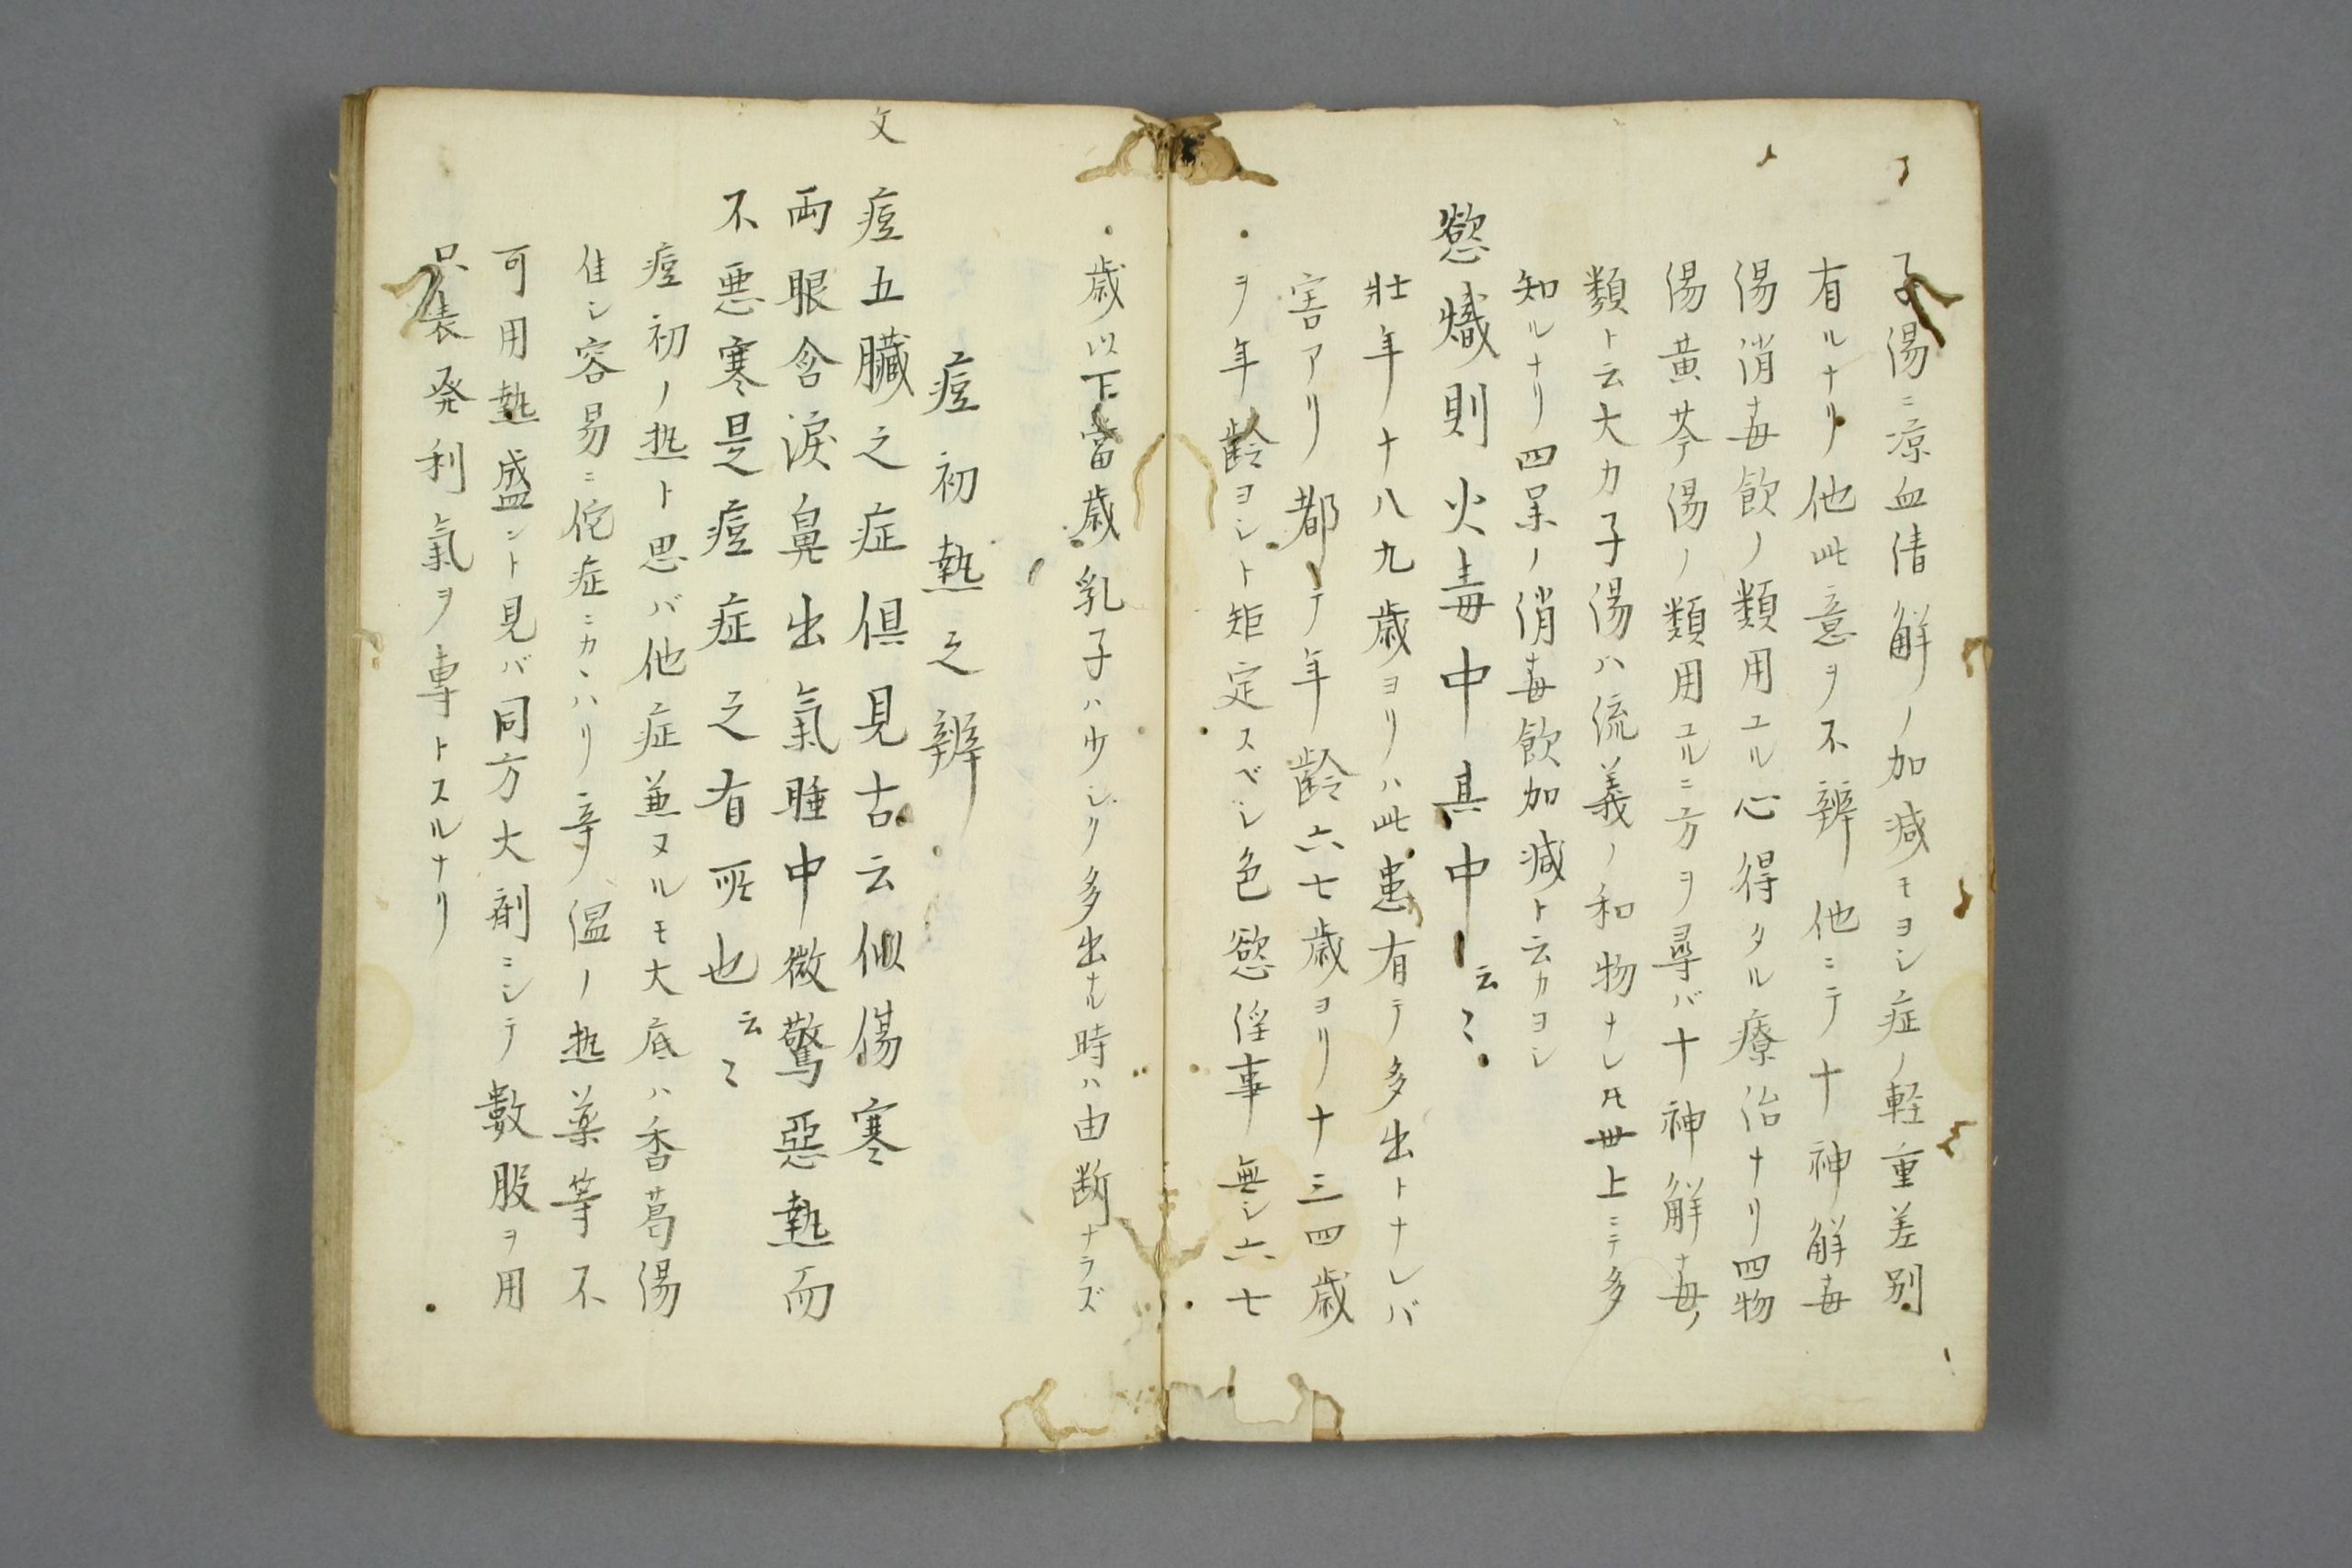 子湯ニ凉血清解ノ加減モヨシ症ノ軽重差別
有ルナリ他此意ヲ不辨他ニテ十神解毒
湯消毒飲ノ類用エル心得タル療治ナリ四物
湯黄芩湯ノ類用エルニ方ヲ尋バ十神解毒ノ
類ト云大力子湯ハ流義ノ和物ナレ𪜈世上ニテ多
知ルナリ四杲ノ消毒飲加減ト云カヨシ
慾熾則火毒中其中云〻
壮年十八九歳ヨリハ此患有テ多出トナレバ
害アリ都テ年齢六七歳ヨリ十三四歳
ヲ年齢ヨシト矩定スベシ色慾淫事無シ六七
歳以下當歳乳子ハ少シク多出ナル時ハ由断ナラズ
痘初熱之辨
文
痘五臓之症倶見古云似傷寒
両眼含淚鼻出氣睡中微驚惡熱而
不悪寒是痘症之有所也云〻
痘初ノ热ト思バ他症兼ヌルモ大底ハ香葛湯
佳シ容易ニ佗症ニカヽハリ辛温ノ热薬等不
可用熱盛ント見バ同方大剤ニシテ數服ヲ用
只表発利氣ヲ専トスルナリ